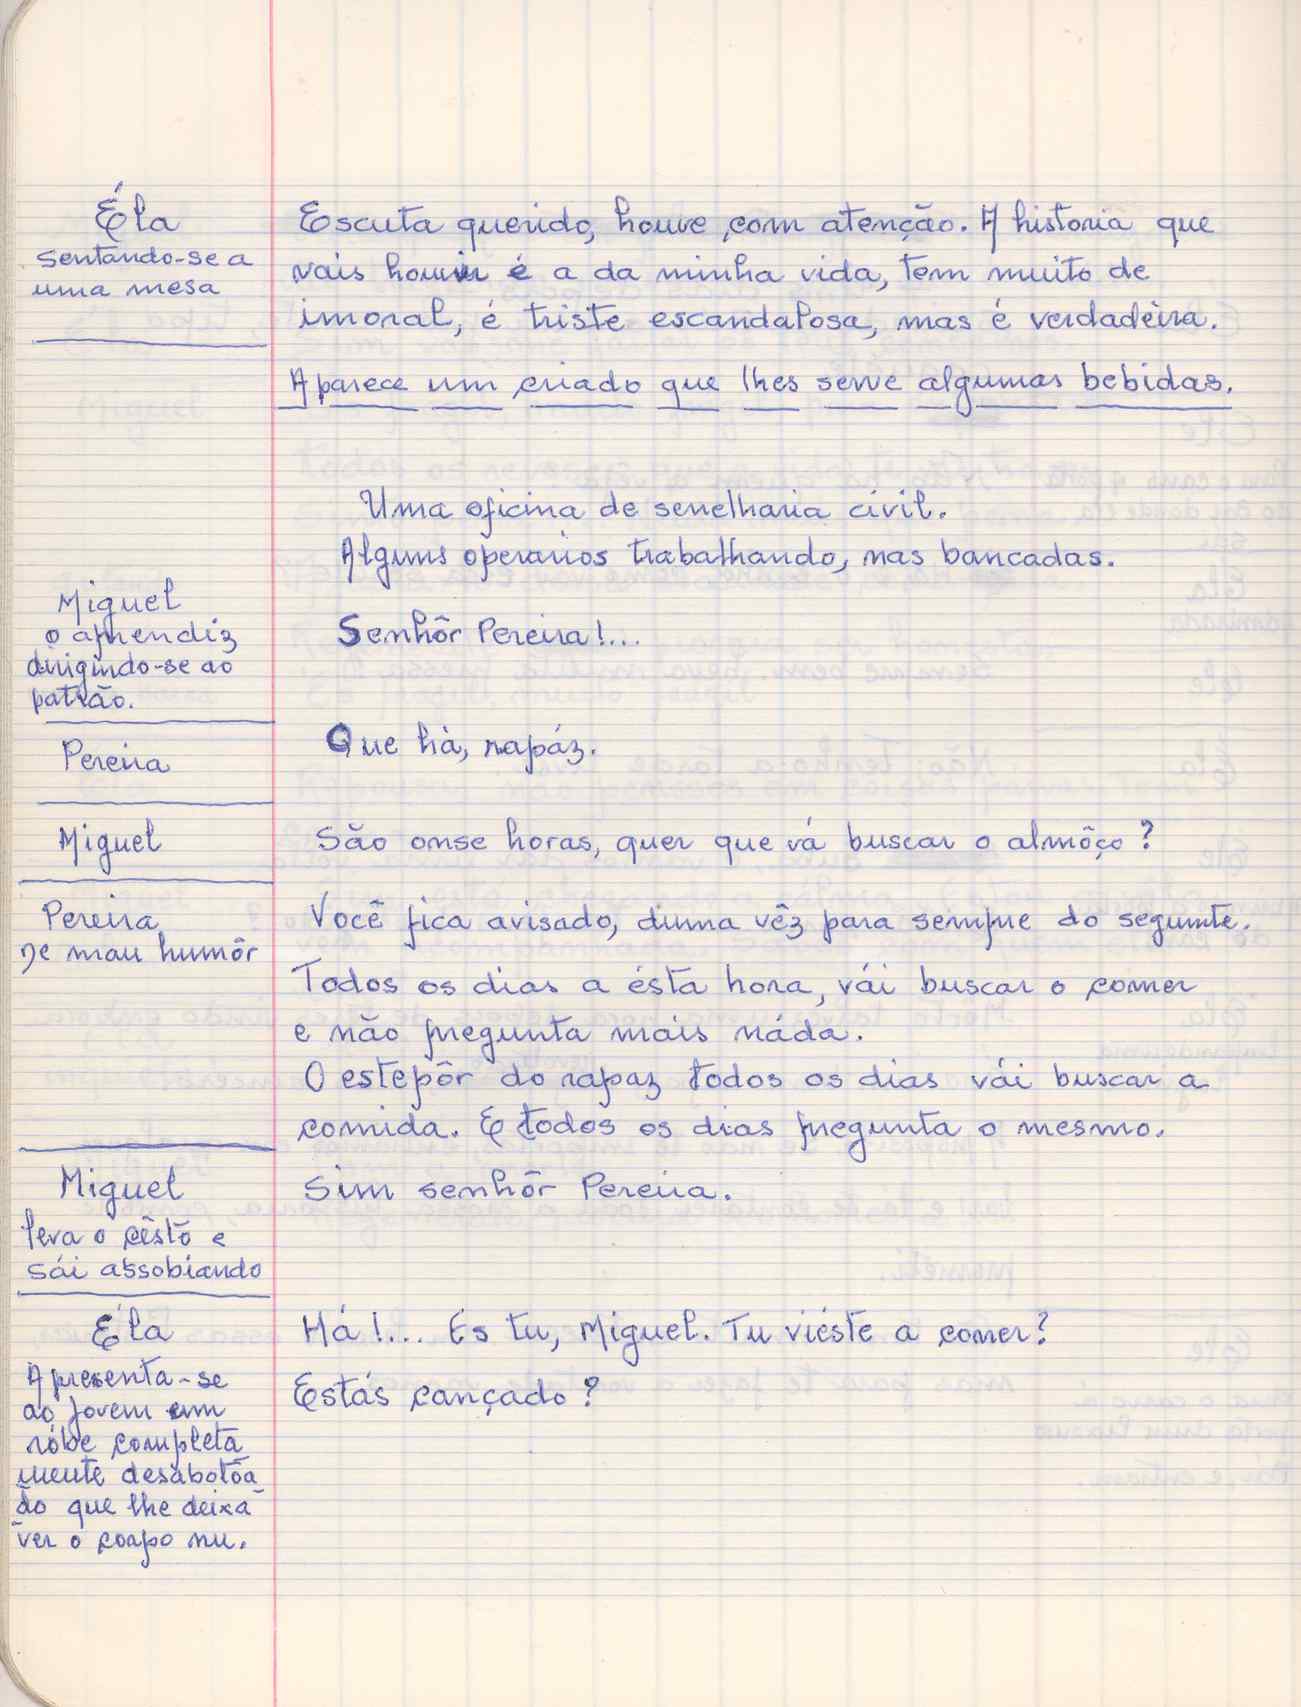 Éla
sentando-se a
uma mesa
Escuta querido, houve com atenção. A historia que
vais houvir é a da minha vida, tem muito de
imoral, é triste escandalosa, mas é verdadeira.
Aparece um criado que lhes serve algumas bebidas.
Uma oficina de serrelharia civil.
Alguns operarios trabalhando, nas bancadas.
Miguel
o aprendiz
dirigindo-se ao
patrão.
Senhôr Pereira!...
Pereira
Que há, rapáz.
Miguel
São onse horas, quer que vá buscar o almôço?
Pereira
De mau humôr
Você fica avisado, duma vêz para sempre do seguinte.
Todos os dias a ésta hora, vái buscar o comer
e não pregunta mais náda.
O estepôr do rapaz todos os dias vái buscar a
comida. E todos os dias pregunta o mesmo.
Miguel
leva o cêsto e
sái assobiando
Sim senhôr Pereira.
Éla
Apresenta-se
ao jovem em
róbe completa
mente desabotôa
do que lhe deixa
ver o corpo nu.
Há!... És tu, Miguel. Tu viéste a comer?
Estás cançado?